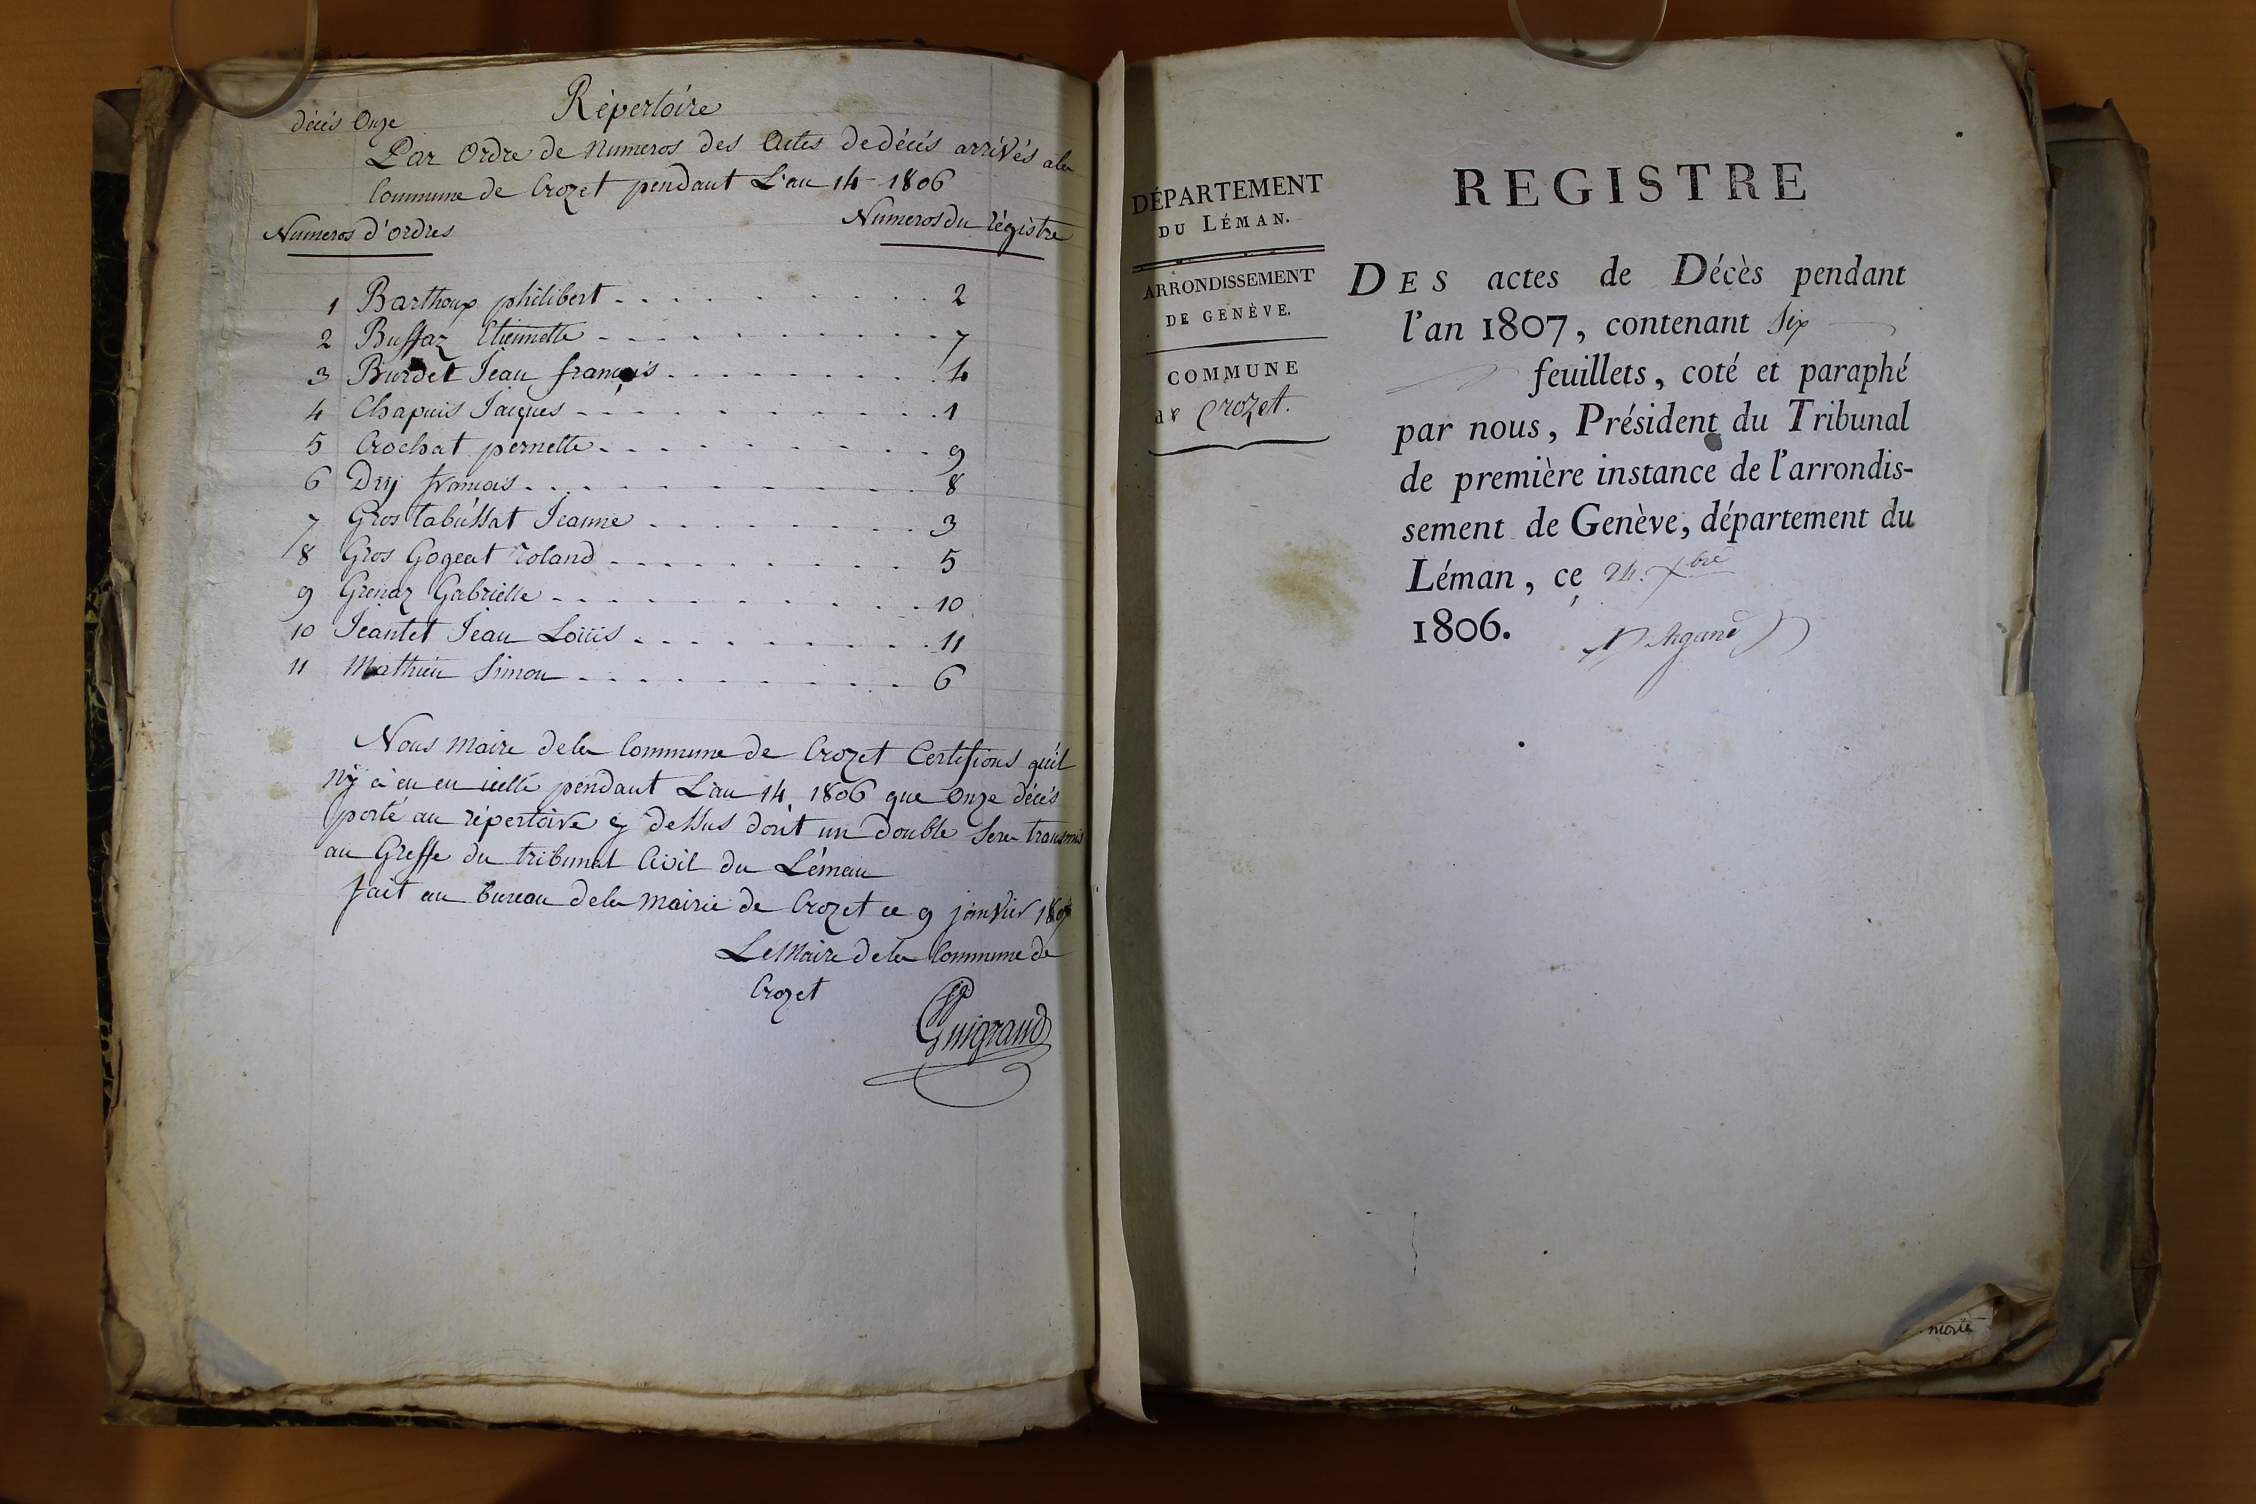 Répertoire
décés Onze
Par Ordre de Numeros des Actes de décés arrivés a la
Commune de Crozet pendant L'an 14 1806
Numeros d'ordres Numeros du régistre
1 Barthoux philibert 2
2 Buffaz Etiennette 7
3 Burdet Jean françois 4
4 Chapuis Jacques 1
5 Crochat pernette 9
6 Dry francois 8
7 Gros tabussat Jeanne 3
8 Gros Gogeat roland 5
9 Grenaz Gabrielle 10
10 Jeantet Jean Louis 11
11 Mathieu Simon 6
Nous Maire de la Commune de Crozet Certifions qu'il
n'y à eu en icelle pendant L'an 14 1806 que Onze décés
porté au répertoire cy dessus dont un double Sera transmis
au Greffe du tribunal Civil du Léman
fait au bureau de la Mairie de Crozet ce 9 janvier 1807
Le Maire de la Commune de
Crozet
Guigrand
DÉPARTEMENT
DU LÉMAN.
ARRONDISSEMENT
DE GENÈVE.
COMMUNE
de Crozet.
REGISTRE
DES actes de Décès pendant
l'an 1807, contenant Six
feuillets, coté et paraphé
par nous, Président du Tribunal
de première instance de l'arrondis-
sement de Genève, département du
Léman, ce 24. Xbre
1806.
Argand